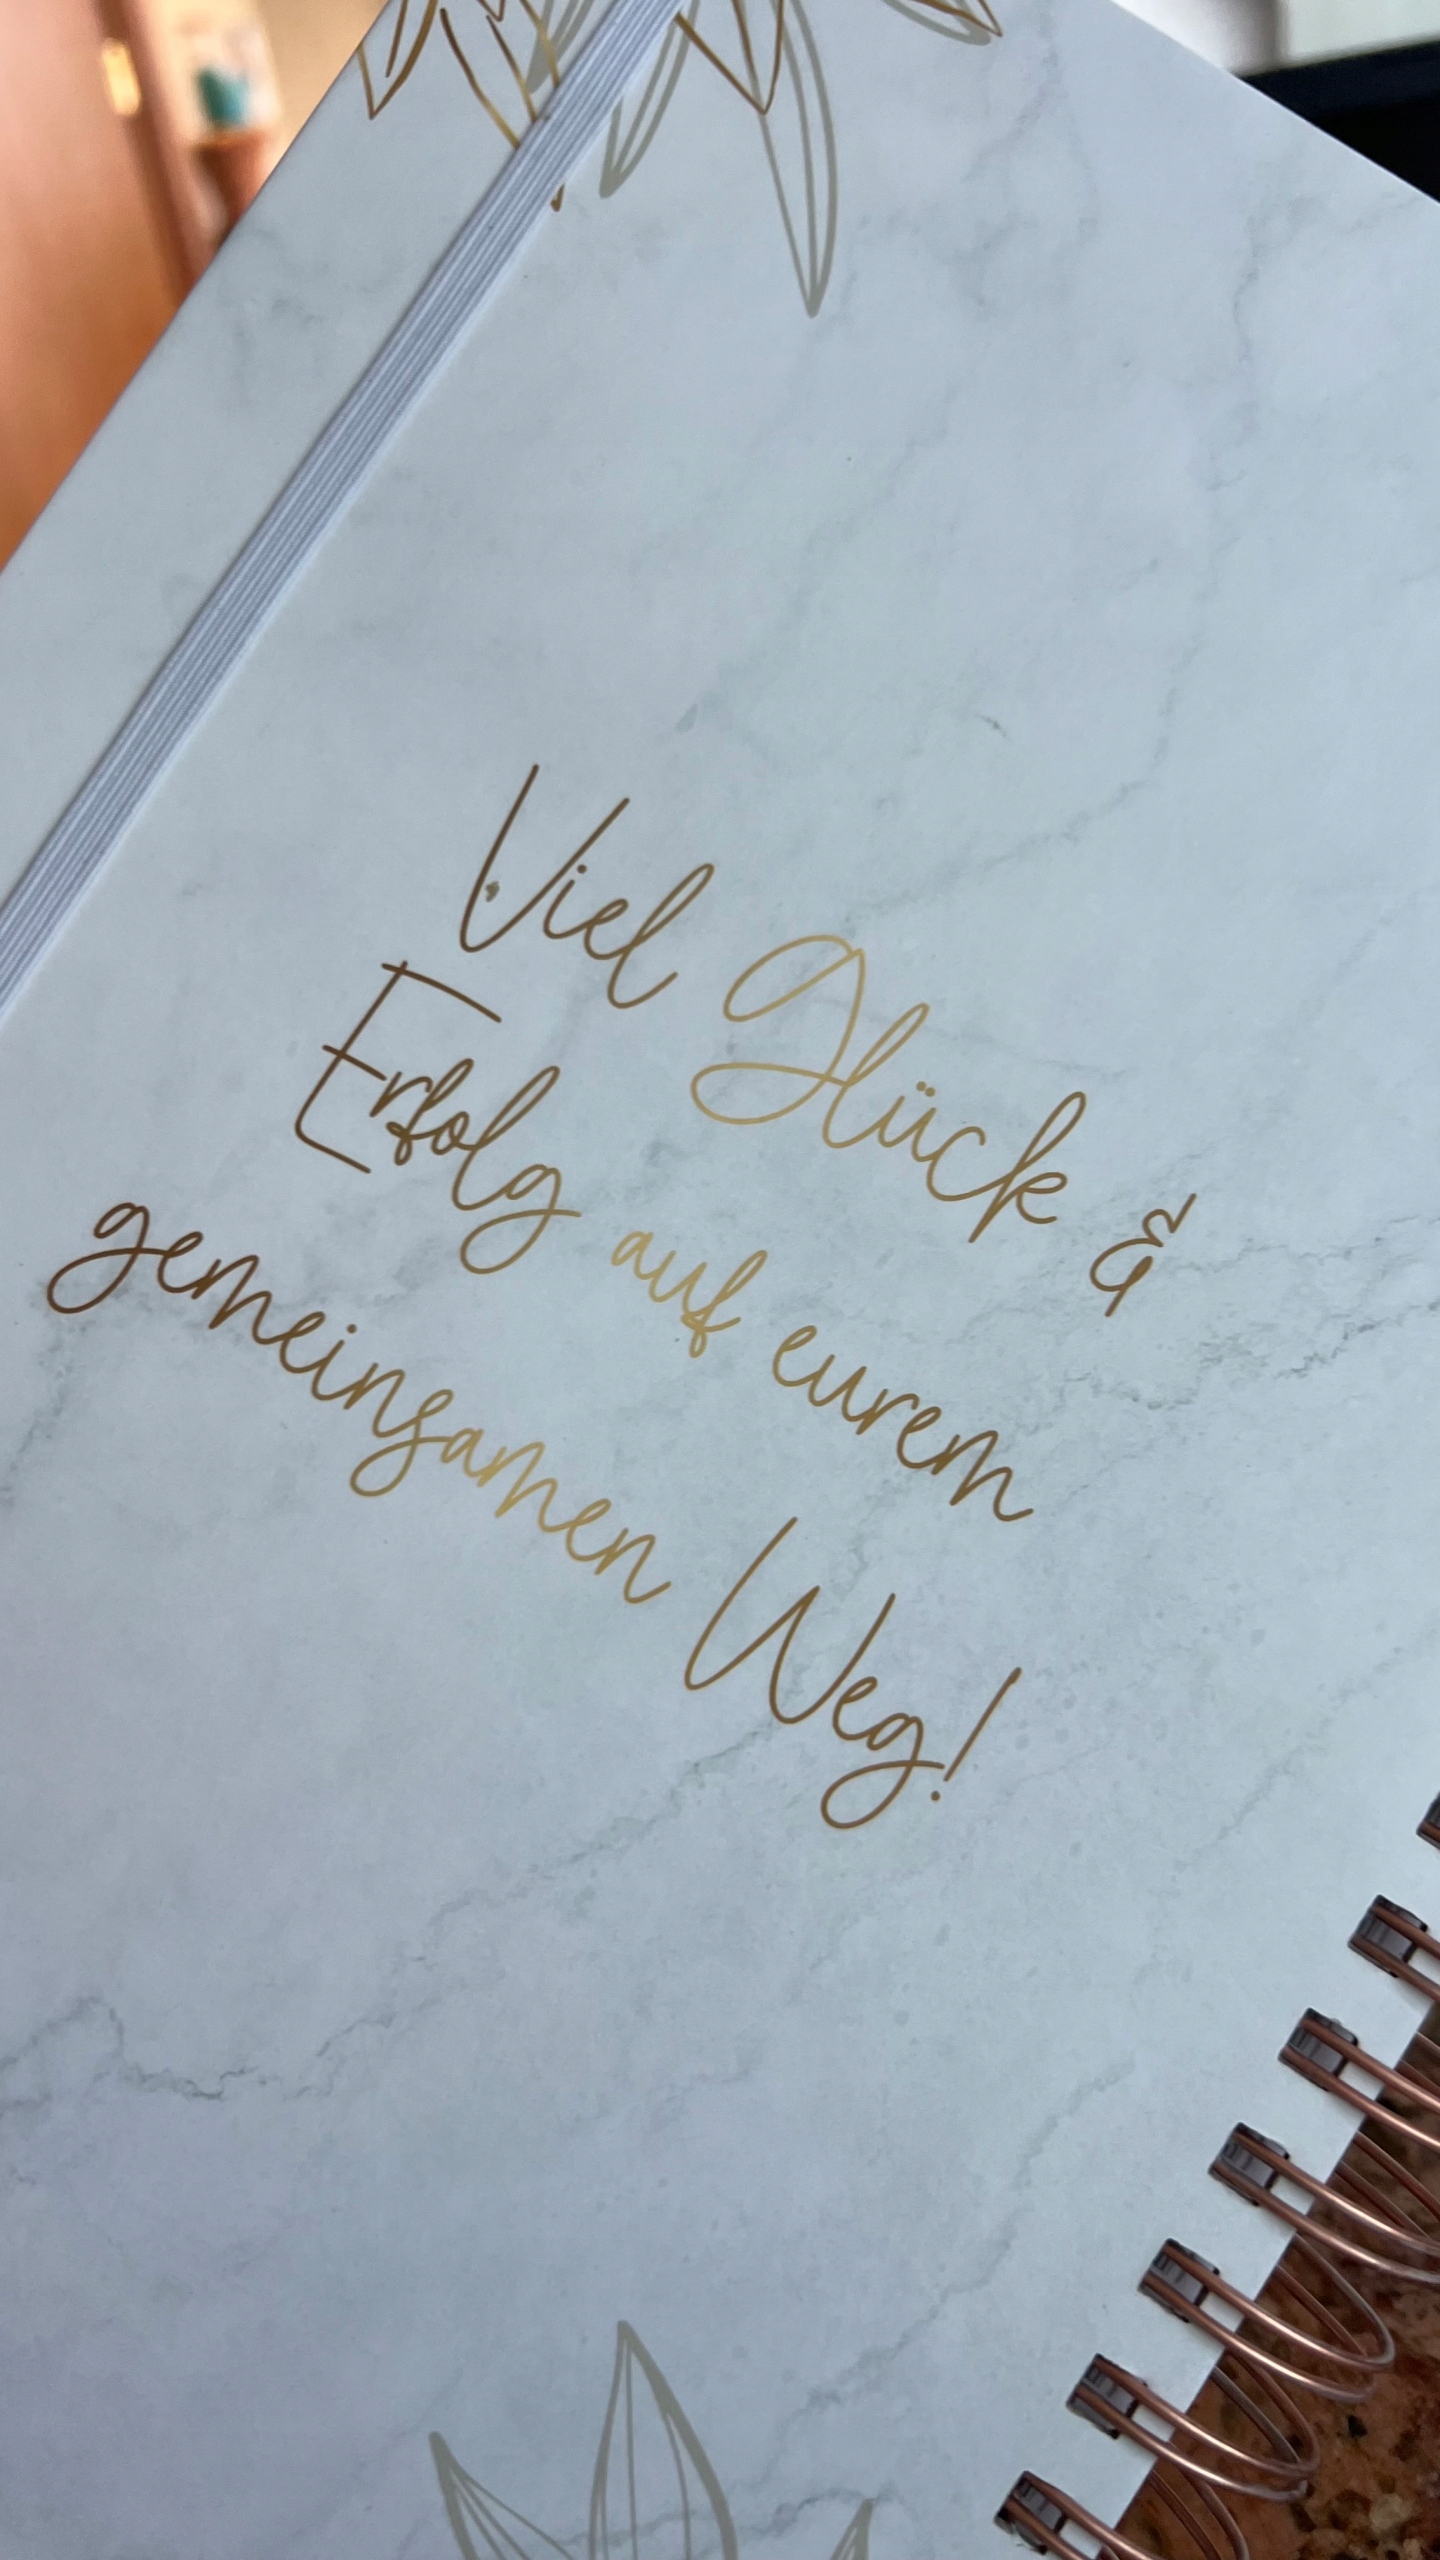 Viel Glück &
Erfolg auf eurem
gemeinsamen Weg!